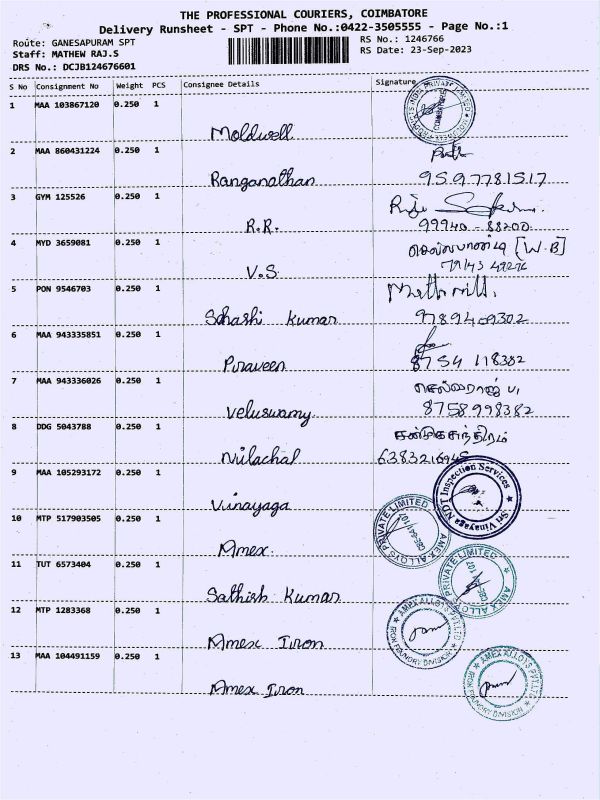 THE PROFESSIONAL COURIERS, COIMBATORE
Delivery Runsheet - SPT - Phone No.:0422-3505555 - Page No.:1
Route: GANESAPURAM SPT
RS No.: 1246766
Staff: MATHEW RAJ.S
RS Date: 23-Sep-2023
DRS No.: DCJB124676601
S No Consignment No Weight PCS Consignee Details Signature
1 MAA 103867120 0.250 1
Moldwell
2 MAA 860431224 0.250 1
Ranganathan 9597781517
3 GYM 125526 0.250 1
R.R. 99940-88200
4 MYD 3659081 0.250 1 [W.B]
V.S
5 PON 9546703 0.250 1
Sahashi Kumar 9789409302
6 MAA 943335851 0.250 1
Piraveen 8754 118382
7 MAA 943336026 0.250 1
Veluswamy 8758998382
8 DDG 5043788 0.250 1
Nilachal 6383216945
9 MAA 105293172 0.250 1 Sri Vinayaga NDT Inspection Services
Vinayaga
10 MTP 517903505 0.250 1 AMEX ALLOYS PRIVATE LIMITED
Amex.
11 TUT 6573404 0.250 1 AMEX ALLOYS PRIVATE LIMITED
Sathish Kumar
12 MTP 1283368 0.250 1 AMEX ALLOYS PVT.LTD IRON FOUNDRY DIVISION
Amex Iron
13 MAA 104491159 0.250 1 AMEX ALLOYS PVT.LTD IRON FOUNDRY DIVISION
Amex Iron